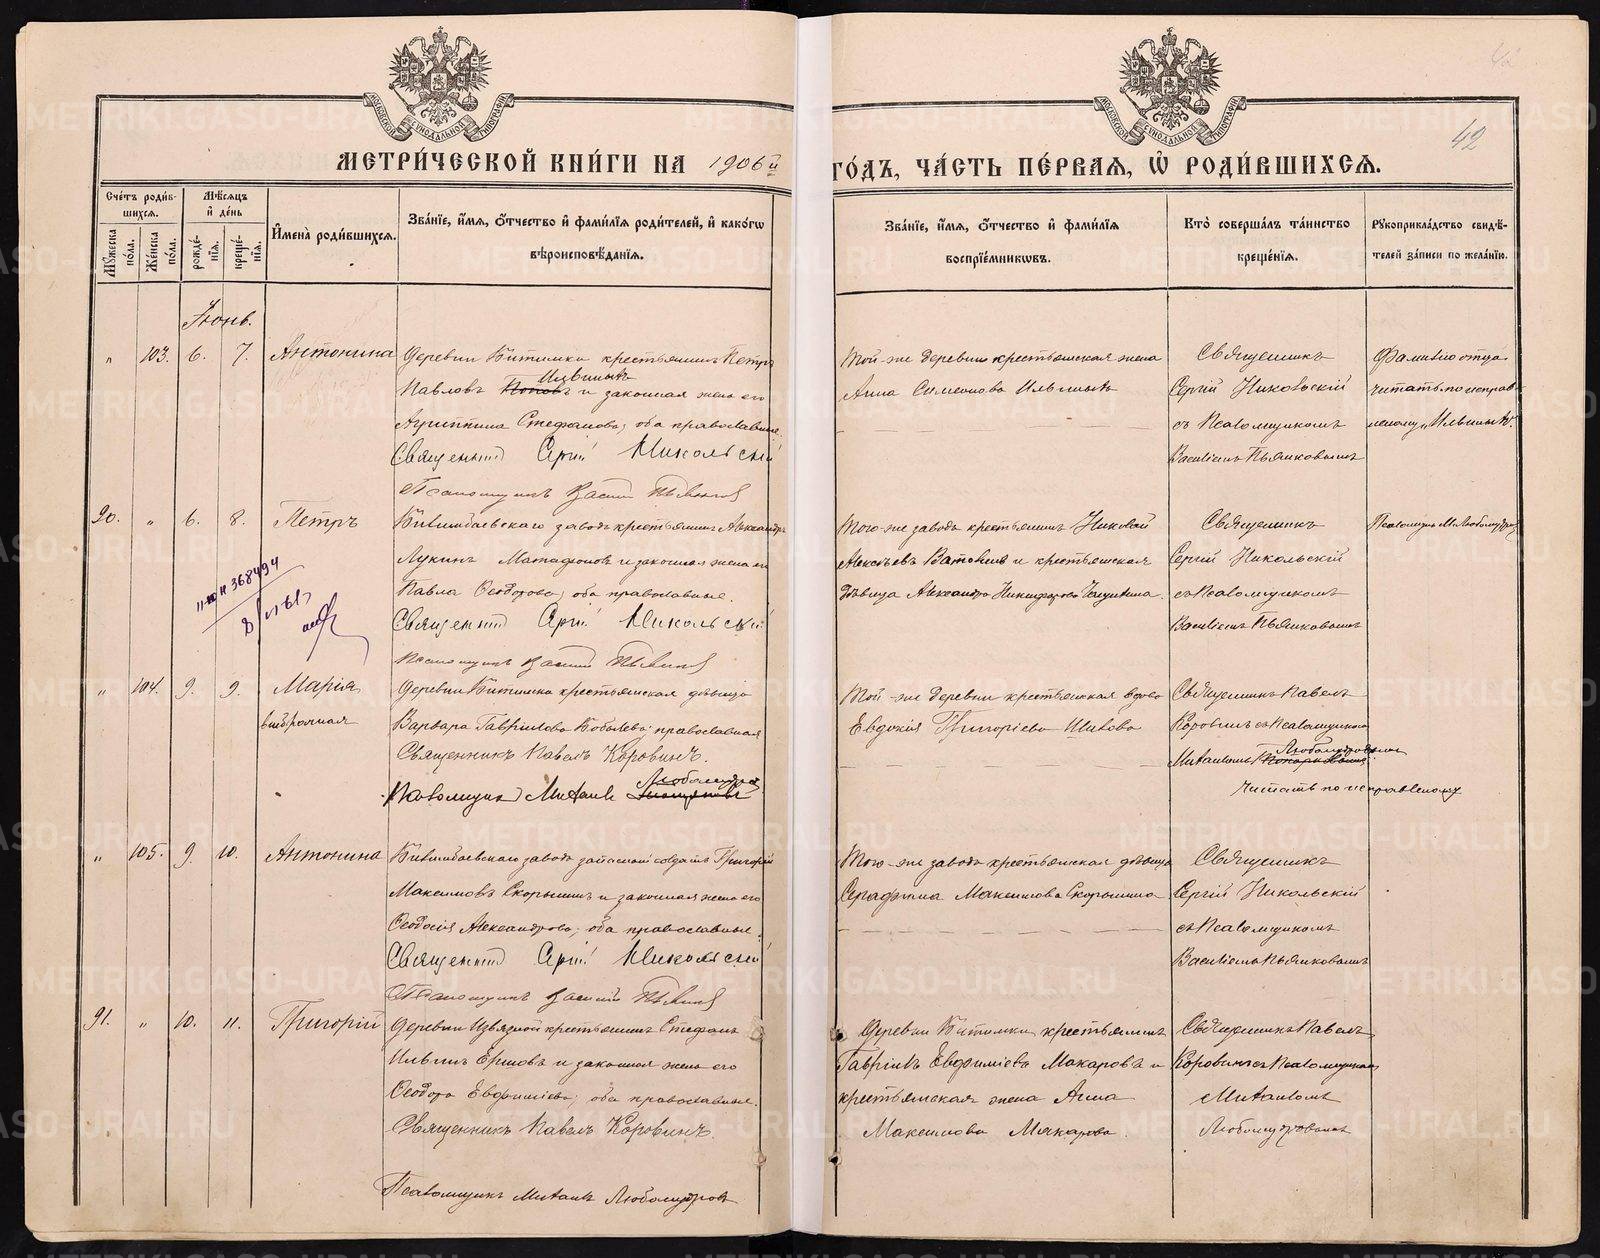 МЕТРИ́ЧЕСКОЙ КНИ́ГИ НА 1906й ГО́ДЪ, ЧА́СТЬ ПЕ́РВАЯ, Ѡ РОДИ́ВШИХСЯ.
42
Сче́тъ роди́вшихся.
Му́жеска по́ла.
Же́нска по́ла.
Мѣ́сяцъ и де́нь
рожде́нїя.
креще́нїя.
Имена̀ роди́вшихся.
Зва́нїе, и́мя, о́тчество и фами́лїя роди́телей, и како́гѡ вѣроисповѣ́данїя.
Зва́нїе, и́мя, о́тчество и фами́лїя воспрїе́мникѡвъ.
Кто̀ соверша́лъ та́инство креще́нїя.
Рукоприкла́дство свидѣ́телей за́писи по жела́нїю.
Іюнь.
„ 103. 6. 7. Антонина
Деревни Битимки крестьянинъ Петръ
Павловъ Поповъ Ильиныхъ и законная жена его
Агриппина Стефанова; оба православные.
Священник Сергий Никольский
Псаломщикъ Василий
Той-же деревни крестьянская жена
Анна Симеонова Ильиныхъ
Священникъ
Сергій Никольскій
съ Псаломщикомъ
Василіемъ Пьянковымъ
Фамилію отца
читать по исправленному „Ильиныхъ".
90. „ 6. 8. Петръ
Билимбаевскаго завода крестьянинъ Александръ
Лукинъ Матафоновъ и законная жена его
Павла Ѳеодорова; оба православные.
Священник Сергий Никольский
Псаломщикъ Василий
Того-же завода крестьянинъ Николай
Алексѣевъ и крестьянская
дѣвица Александра Никифорова
Священникъ
Сергій Никольскій
съ Псаломщикомъ
Василіемъ Пьянковымъ
Псаломщикъ М. Любомудровъ
368494
„ 104. 9. 9. Марія
внѣбрачная
Деревни Битимка крестьянская дѣвица
Варвара Гаврилова Кобылева; православная
Священникъ Павелъ Коровинъ.
Псаломщикъ Михаилъ Любомудровъ
Той-же деревни крестьянская вдова
Евдокія Григоріева
Священникъ Павелъ
Коровинъ съ Псаломщикомъ
Михаиломъ Любомудровымъ
Читать по исправленному
„ 105. 9. 10. Антонина
Билимбаевскаго завода запасной солдатъ Григорій
Максимовъ Скорынинъ и законная жена его
Ѳеодосія Александрова; оба православные.
Священник Сергий Никольский
Псаломщикъ Василий
Того-же завода крестьянская дѣвица
Серафима Максимова Скорынина
Священникъ
Сергій Никольскій
съ Псаломщикомъ
Василіемъ Пьянковымъ
91. „ 10. 11. Григорій
Деревни Извязной крестьянинъ Стефанъ
Ильинъ Ершовъ и законная жена его
Ѳеодора Евфиміева; оба православные.
Священникъ Павелъ Коровинъ.
Псаломщикъ Михаилъ Любомудровъ
Деревни Битимки крестьянинъ
Гавріилъ Евфиміевъ Макаровъ и
крестьянская жена Анна
Максимова Макарова.
Священникъ Павелъ
Коровинъ съ Псаломщикомъ
Михаиломъ
Любомудровымъ
METRIKI.GASO-URAL.RU